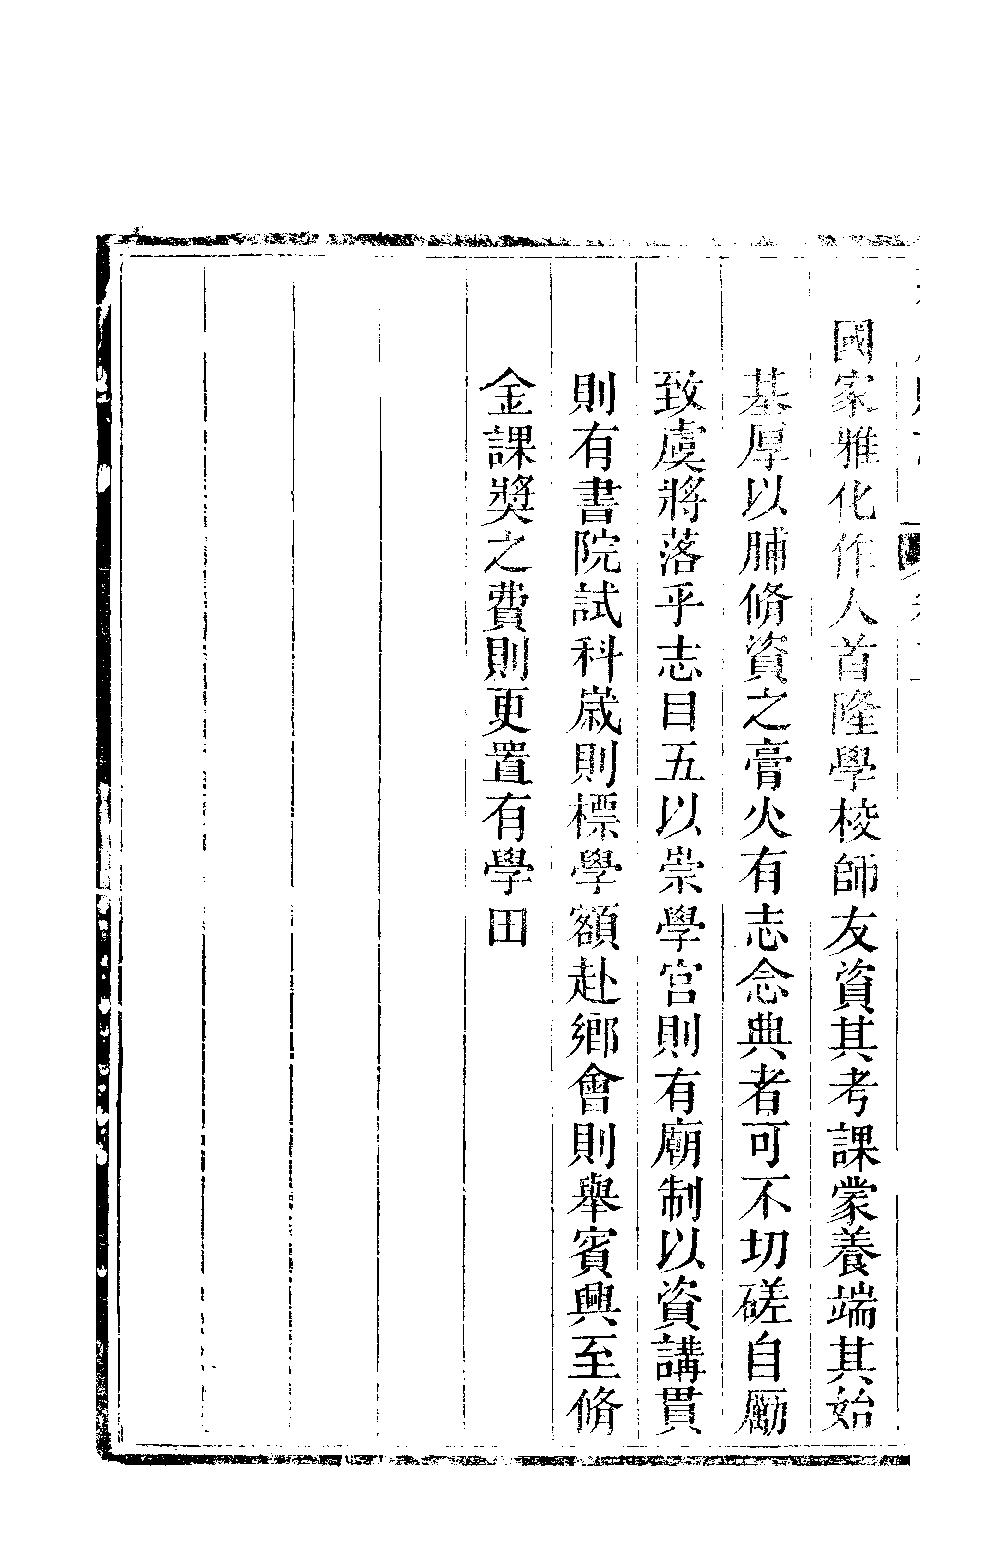 國家雅化作人首隆學校師友資其考課蒙養端其始
基厚以脯脩資之膏火有志念典者可不切磋自勵
致虞將落乎志目五以崇學宮則有廟制以資講貫
則有書院試科嵗則標學額赴鄉會則舉賓興至脩
金課奬之費則更置有學田